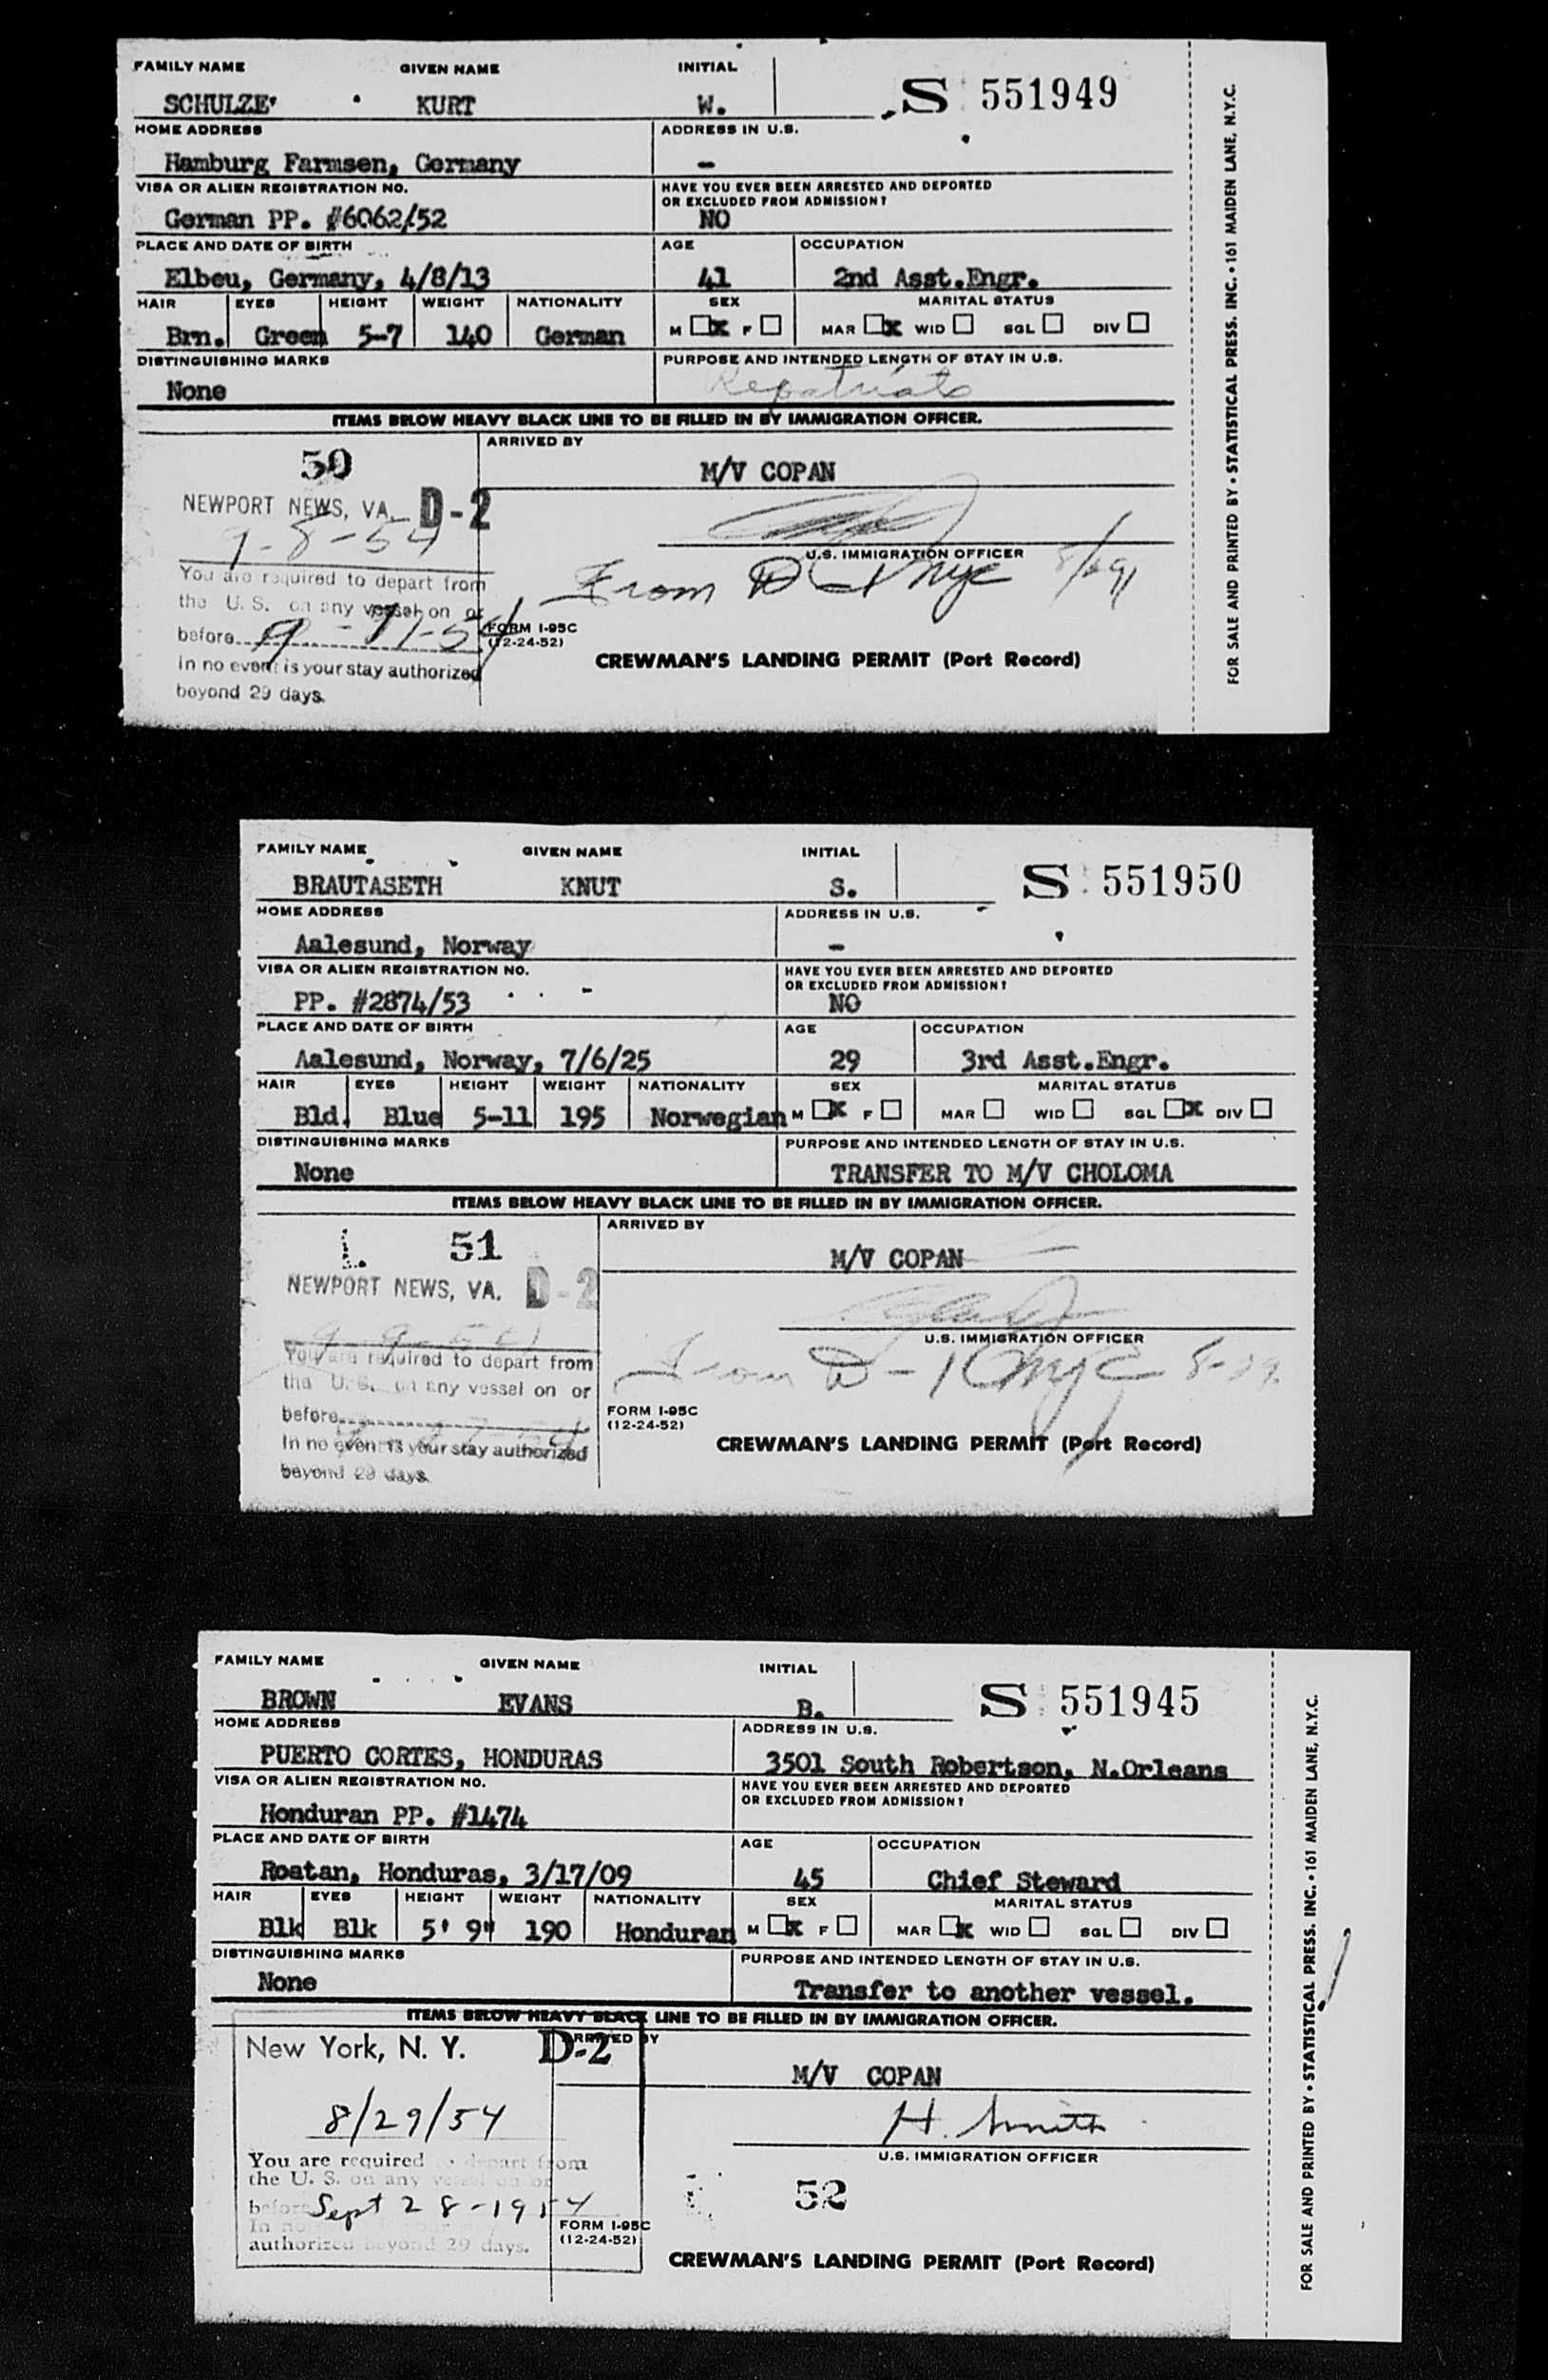 FAMILY NAME GIVEN NAME INITIAL
S 551949
SCHULZE KURT W.
HOME ADDRESS ADDRESS IN U.S.
Hamburg Farmsen, Germany -
VISA OR ALIEN REGISTRATION NO. HAVE YOU EVER BEEN ARRESTED AND DEPORTED
OR EXCLUDED FROM ADMISSION?
German PP. #6062/52 NO
PLACE AND DATE OF BIRTH AGE OCCUPATION
Elbeu, Germany, 4/8/13 41 2nd Asst.Engr.
HAIR EYES HEIGHT WEIGHT NATIONALITY SEX MARITAL STATUS
Brn. Green 5-7 140 German M X F MAR X WID SGL DIV
DISTINGUISHING MARKS PURPOSE AND INTENDED LENGTH OF STAY IN U.S.
None Repatriate
ITEMS BELOW HEAVY BLACK LINE TO BE FILLED IN BY IMMIGRATION OFFICER.
ARRIVED BY
50 M/V COPAN
NEWPORT NEWS, VA. D-2
9-8-54
U.S. IMMIGRATION OFFICER
You are required to depart from
From D-1 NYC
the U. S. on any vessel on or
before 9-11-54
FORM I-95C
(12-24-52)
In no event is your stay authorized
CREWMAN'S LANDING PERMIT (Port Record)
beyond 29 days.
FOR SALE AND PRINTED BY • STATISTICAL PRESS. INC. • 161 MAIDEN LANE, N.Y.C.
FAMILY NAME GIVEN NAME INITIAL
S 551950
BRAUTASETH KNUT S.
HOME ADDRESS ADDRESS IN U.S.
Aalesund, Norway -
VISA OR ALIEN REGISTRATION NO. HAVE YOU EVER BEEN ARRESTED AND DEPORTED
OR EXCLUDED FROM ADMISSION?
PP. #2874/53 NO
PLACE AND DATE OF BIRTH AGE OCCUPATION
Aalesund, Norway, 7/6/25 29 3rd Asst.Engr.
HAIR EYES HEIGHT WEIGHT NATIONALITY SEX MARITAL STATUS
Bld. Blue 5-11 195 Norwegian M X F MAR WID SGL X DIV
DISTINGUISHING MARKS PURPOSE AND INTENDED LENGTH OF STAY IN U.S.
None TRANSFER TO M/V CHOLOMA
ITEMS BELOW HEAVY BLACK LINE TO BE FILLED IN BY IMMIGRATION OFFICER.
ARRIVED BY
51 M/V COPAN
NEWPORT NEWS, VA. D-2
9-9-54
U.S. IMMIGRATION OFFICER
You are required to depart from
From D-1 NYC 8-29
the U. S. on any vessel on or
before
FORM I-95C
(12-24-52)
In no event is your stay authorized
CREWMAN'S LANDING PERMIT (Port Record)
beyond 29 days.
FAMILY NAME GIVEN NAME INITIAL
S 551945
BROWN EVANS B.
HOME ADDRESS ADDRESS IN U.S.
PUERTO CORTES, HONDURAS 3501 South Robertson, N.Orleans
VISA OR ALIEN REGISTRATION NO. HAVE YOU EVER BEEN ARRESTED AND DEPORTED
OR EXCLUDED FROM ADMISSION?
Honduran PP. #1474
PLACE AND DATE OF BIRTH AGE OCCUPATION
Roatan, Honduras, 3/17/09 45 Chief Steward
HAIR EYES HEIGHT WEIGHT NATIONALITY SEX MARITAL STATUS
Blk Blk 5' 9" 190 Honduran M X F MAR X WID SGL DIV
DISTINGUISHING MARKS PURPOSE AND INTENDED LENGTH OF STAY IN U.S.
None Transfer to another vessel.
ITEMS BELOW HEAVY BLACK LINE TO BE FILLED IN BY IMMIGRATION OFFICER.
New York, N. Y. D-2 ARRIVED BY
M/V COPAN
8/29/54 H. Smith
U.S. IMMIGRATION OFFICER
You are required to depart from
the U. S. on any vessel on or
52
before Sept 28-1954
In no
FORM I-95C
(12-24-52)
authorized beyond 29 days.
CREWMAN'S LANDING PERMIT (Port Record)
FOR SALE AND PRINTED BY • STATISTICAL PRESS. INC. • 161 MAIDEN LANE, N.Y.C.